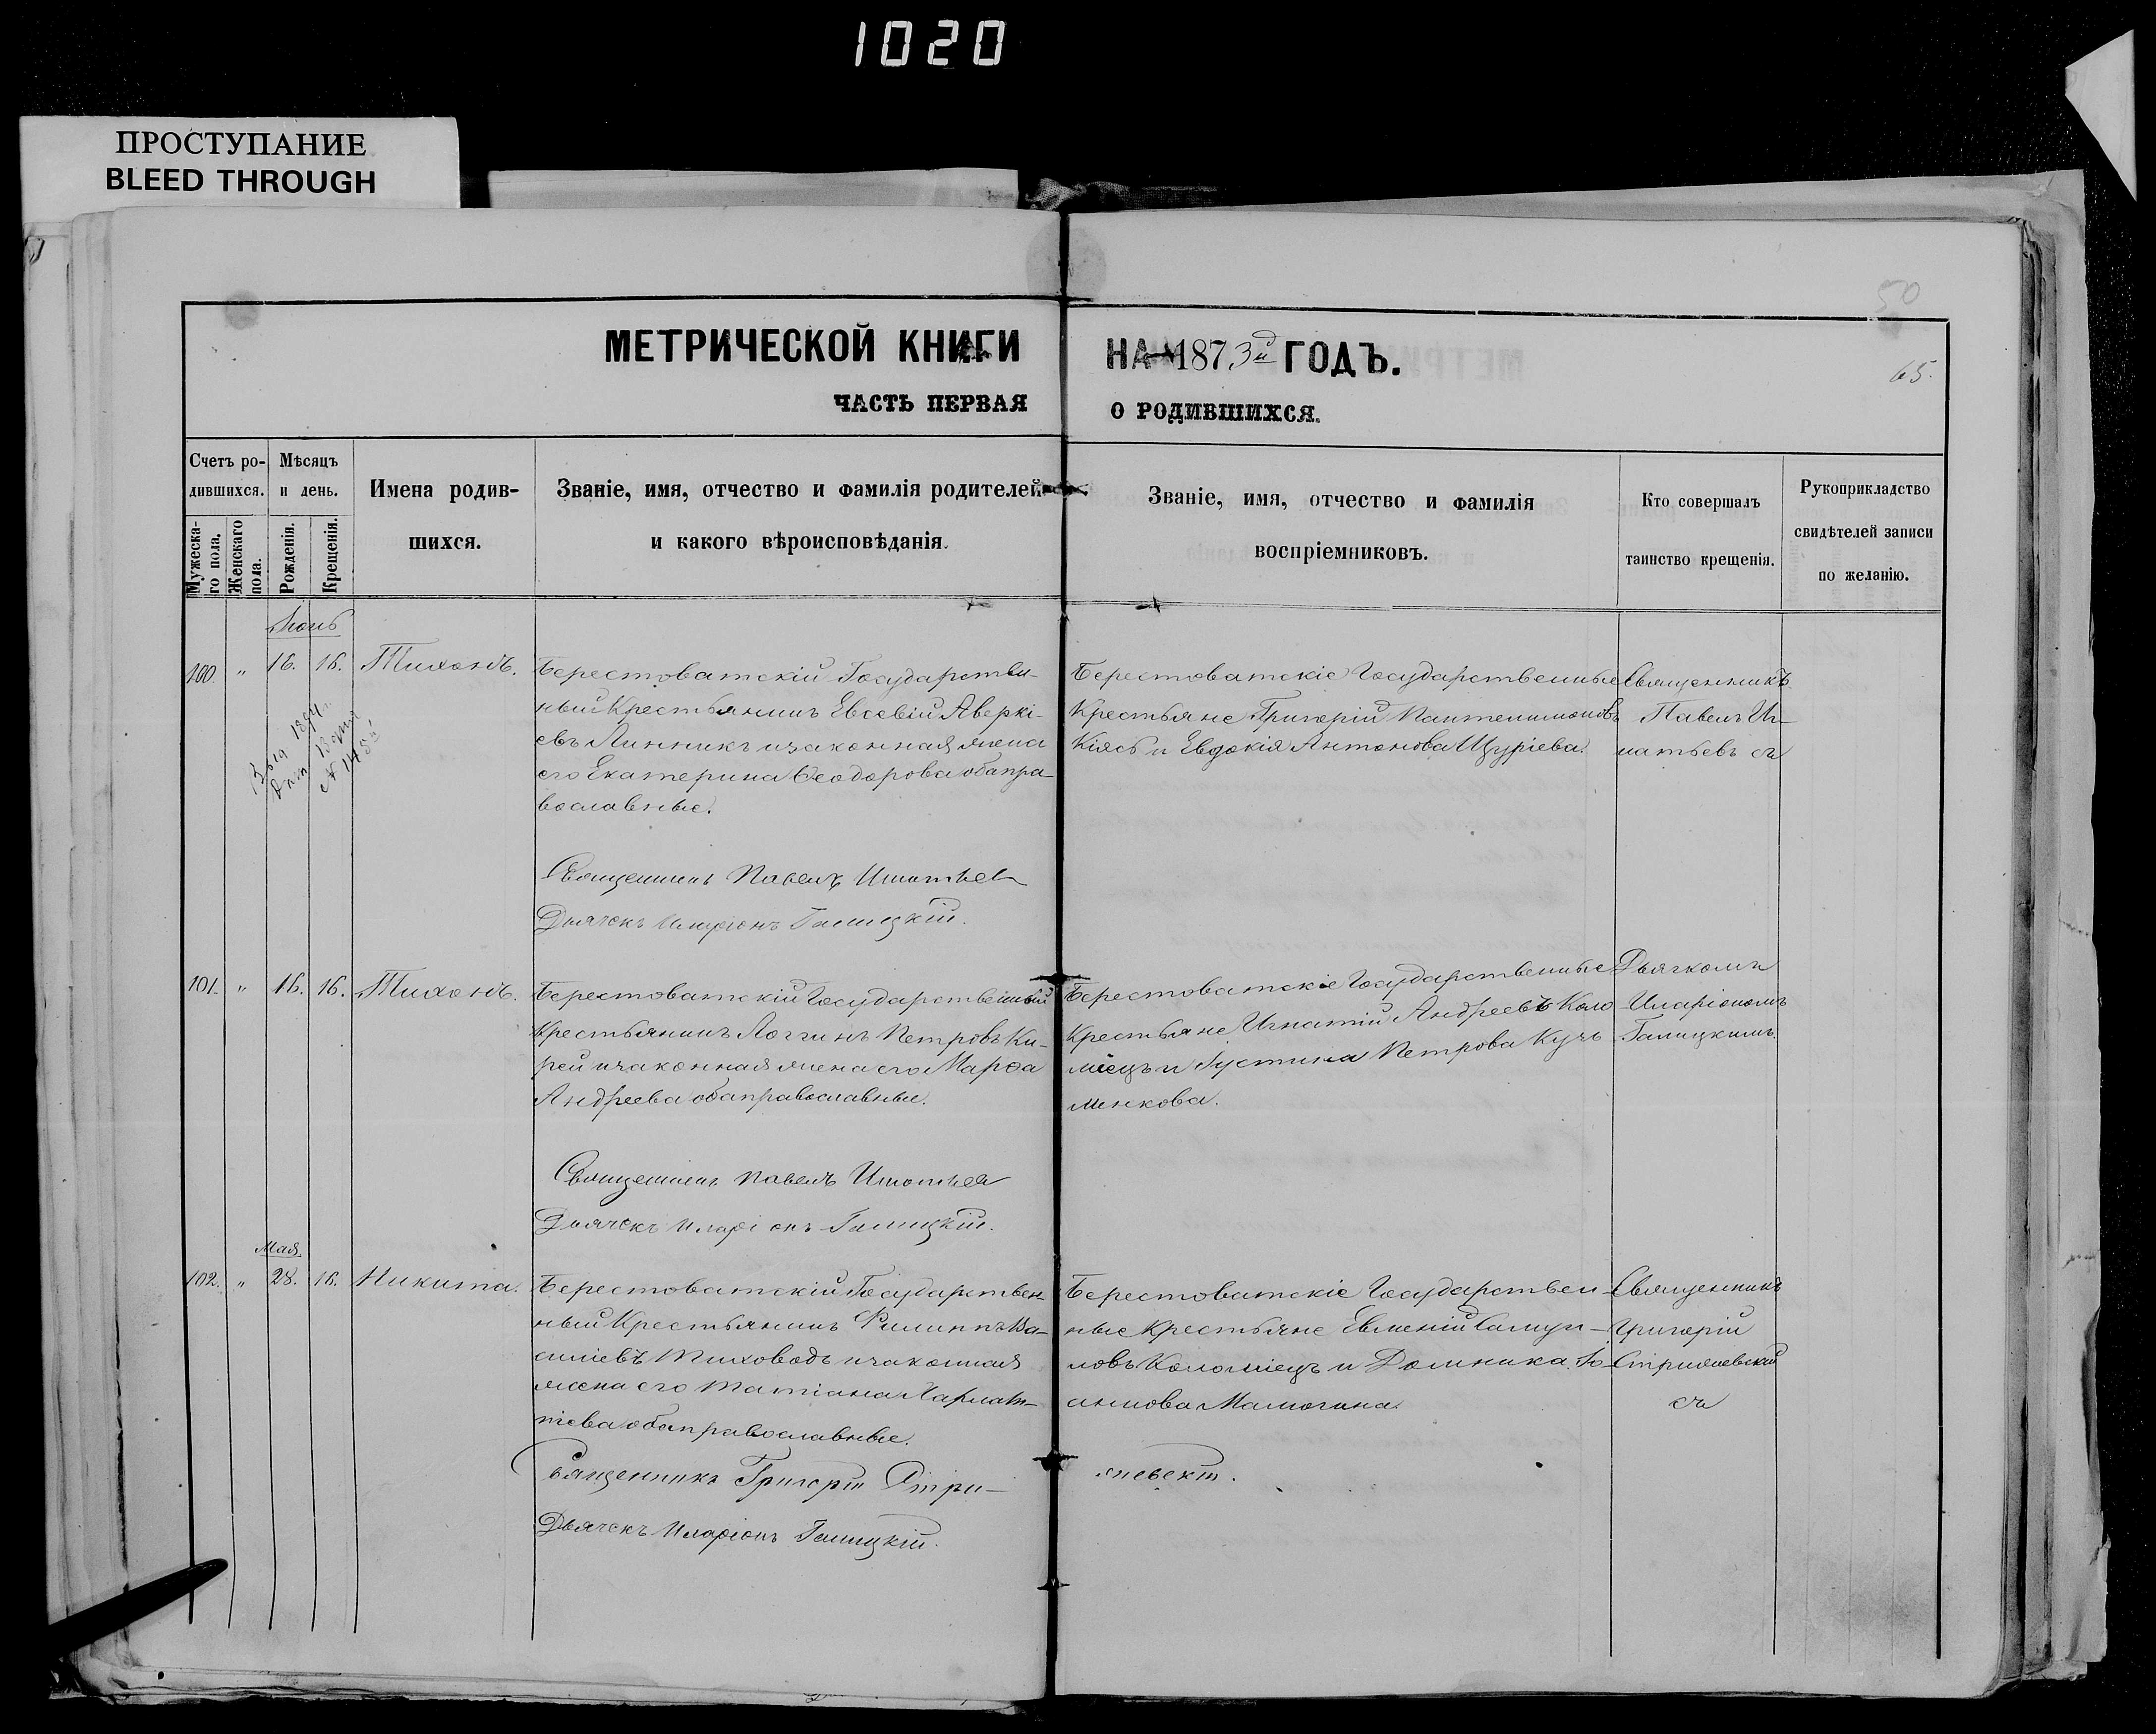 1020
ПРОСТУПАНИЕ
BLEED THROUGH
50
65.
МЕТРИЧЕСКОЙ КНИГИ НА 1873й ГОДЪ.
ЧАСТЬ ПЕРВАЯ О РОДИВШИХСЯ.
Счетъ ро-
дившихся.
Мужеска-
го пола.
Женскаго
пола.
Мѣсяцъ
и день.
Рожденія.
Крещенія.
Имена родив-
шихся.
Званіе, имя, отчество и фамилія родителей
и какого вѣроисповѣданія.
Званіе, имя, отчество и фамилія
воспріемниковъ.
Кто совершалъ
таинство крещенія.
Рукоприкладство
свидѣтелей записи
по желанію.
Іюнь
100. " 16. 16. Тихонъ.
Берестоватскій Государствен-
ный Крестьянинъ Евсевій Аверкі-
евъ Линникъ и законная жена
его Екатерина Ѳеодорова оба пра-
вославные.
Священникъ Павелъ Игнатьевъ
Дьячекъ Иларіонъ Галицкій.
Берестоватскіе Государственные
Крестьяне Григорій Пантелимоновъ
Кіясь и Евдокія Антонова Щуріева.
Священникъ
Павелъ Иг-
натьевъ съ
101. " 16. 16. Тихонъ.
Берестоватскій Государственный
Крестьянинъ Логгинъ Петровъ Ки-
рей и законная жена его Марѳа
Андреева оба православные.
Священникъ Павелъ Игнатьевъ
Дьячекъ Иларіонъ Галицкій.
Берестоватскіе Государственные
Крестьяне Игнатій Андреевъ Коло
міецъ и Іустина Петрова Кузь
менкова.
Дьячкомъ
Иларіономъ
Галицкимъ.
Мая
102. " 28. 16. Никита.
Берестоватскій Государствен-
ный Крестьянинъ Филиппъ Ва-
силіевъ Тиховодъ и законная
жена его Татіана Харлам-
піева оба православные.
Священникъ Григорій Стри-
жевскій.
Дьячекъ Иларіонъ Галицкій.
Берестоватскіе Государствен-
ные Крестьяне Евменій Самуи-
ловъ Коломіецъ и Домника Іо-
аннова
Священникъ
Григорій
Стрижевскій
съ